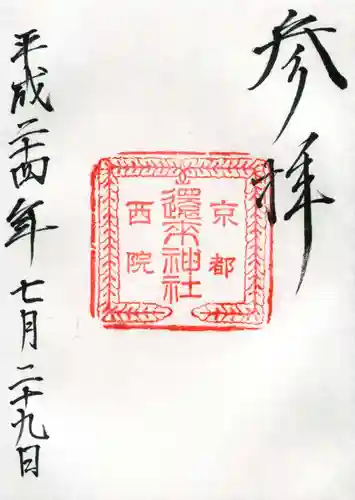 参拝
京都
還来神社
西院
平成二十四年七月二十九日